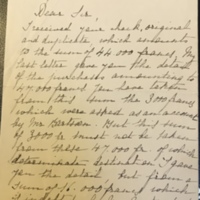 Dear Sir,
I received your check, original
and duplicate which amounts
to the sum of 44.000 francs. My
last letter gave you the detail
of the purchases amounting to
47,000 francs you have taken
from this sum the 3000 francs
which were asked as an account
by Mr. But this sum
of 3000 fr must not be taken
from these 47.000 fr. of which
determinate destination I gave
you the detail. But from a
sum of francs which